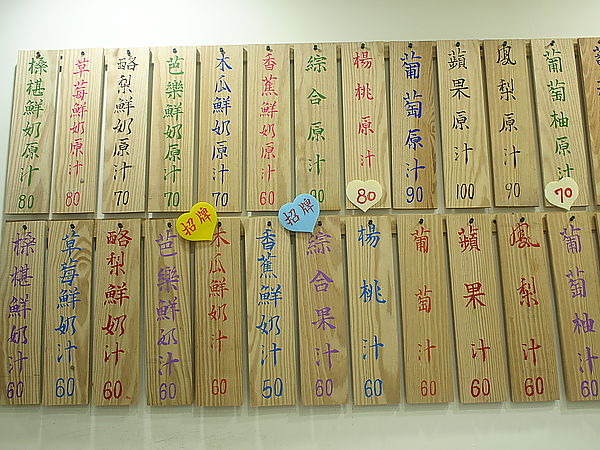 榛椹鮮奶原汁 80
草莓鮮奶原汁 80
酪梨鮮奶原汁 70
芭樂鮮奶原汁 70
木瓜鮮奶原汁 70
香蕉鮮奶原汁 60
綜合原汁
楊桃原汁 80
葡萄原汁 90
蘋果原汁 100
鳳梨原汁 90
葡萄柚原汁 70
招牌
招牌
榛椹鮮奶汁 60
草莓鮮奶汁 60
酪梨鮮奶汁 60
芭樂鮮奶汁 60
木瓜鮮奶汁 60
香蕉鮮奶汁 50
綜合果汁 60
楊桃汁 60
葡萄汁 60
蘋果汁 60
鳳梨汁 60
葡萄柚汁 60